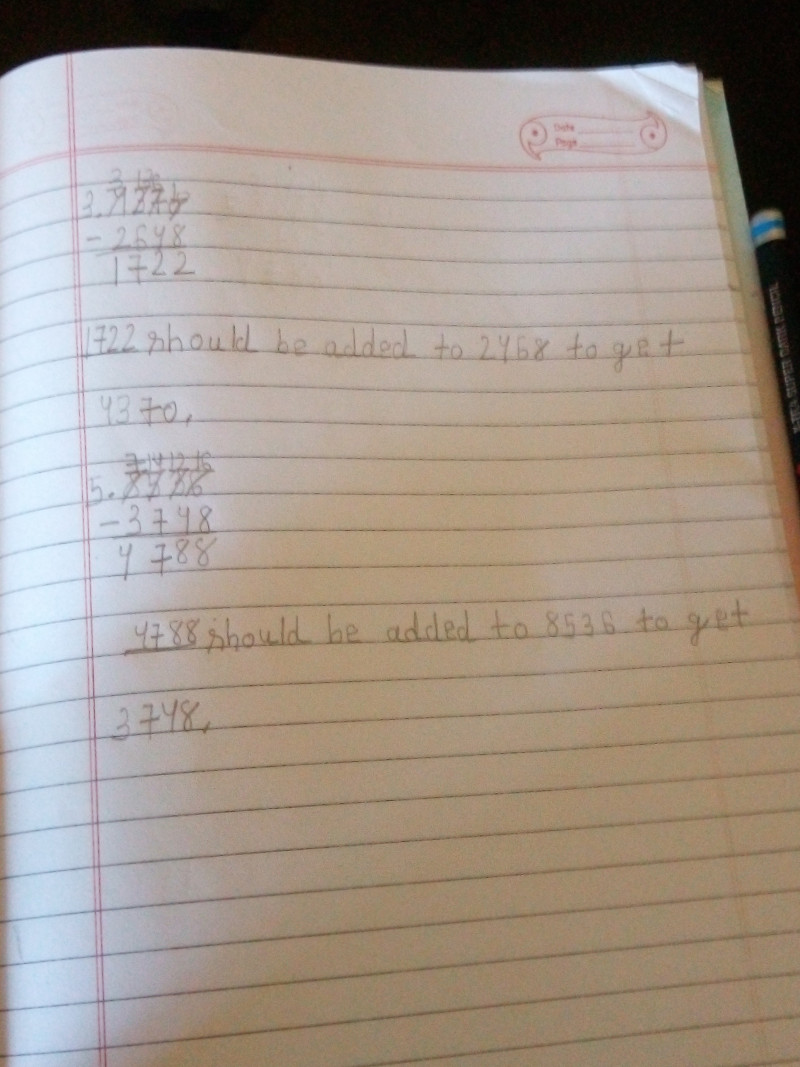 Date
Page
3 13
3. 4370
- 2648
1722
1722 should be added to 2468 to get
4370,
7 14 12 16
5. 8536
- 3748
4788
4788 should be added to 8536 to get
3748,